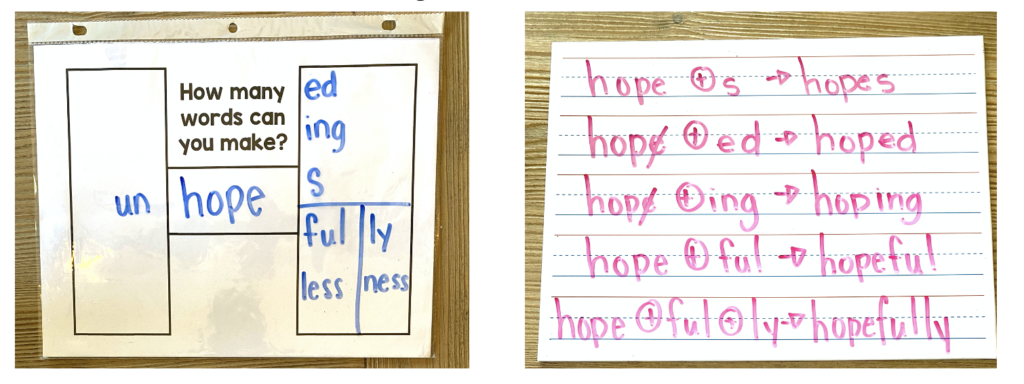 How many
words can
you make?
un
hope
ed
ing
s
ful ly
less ness
hope + s → hopes
hope + ed → hoped
hope + ing → hoping
hope + ful → hopeful
hope + ful + ly → hopefully